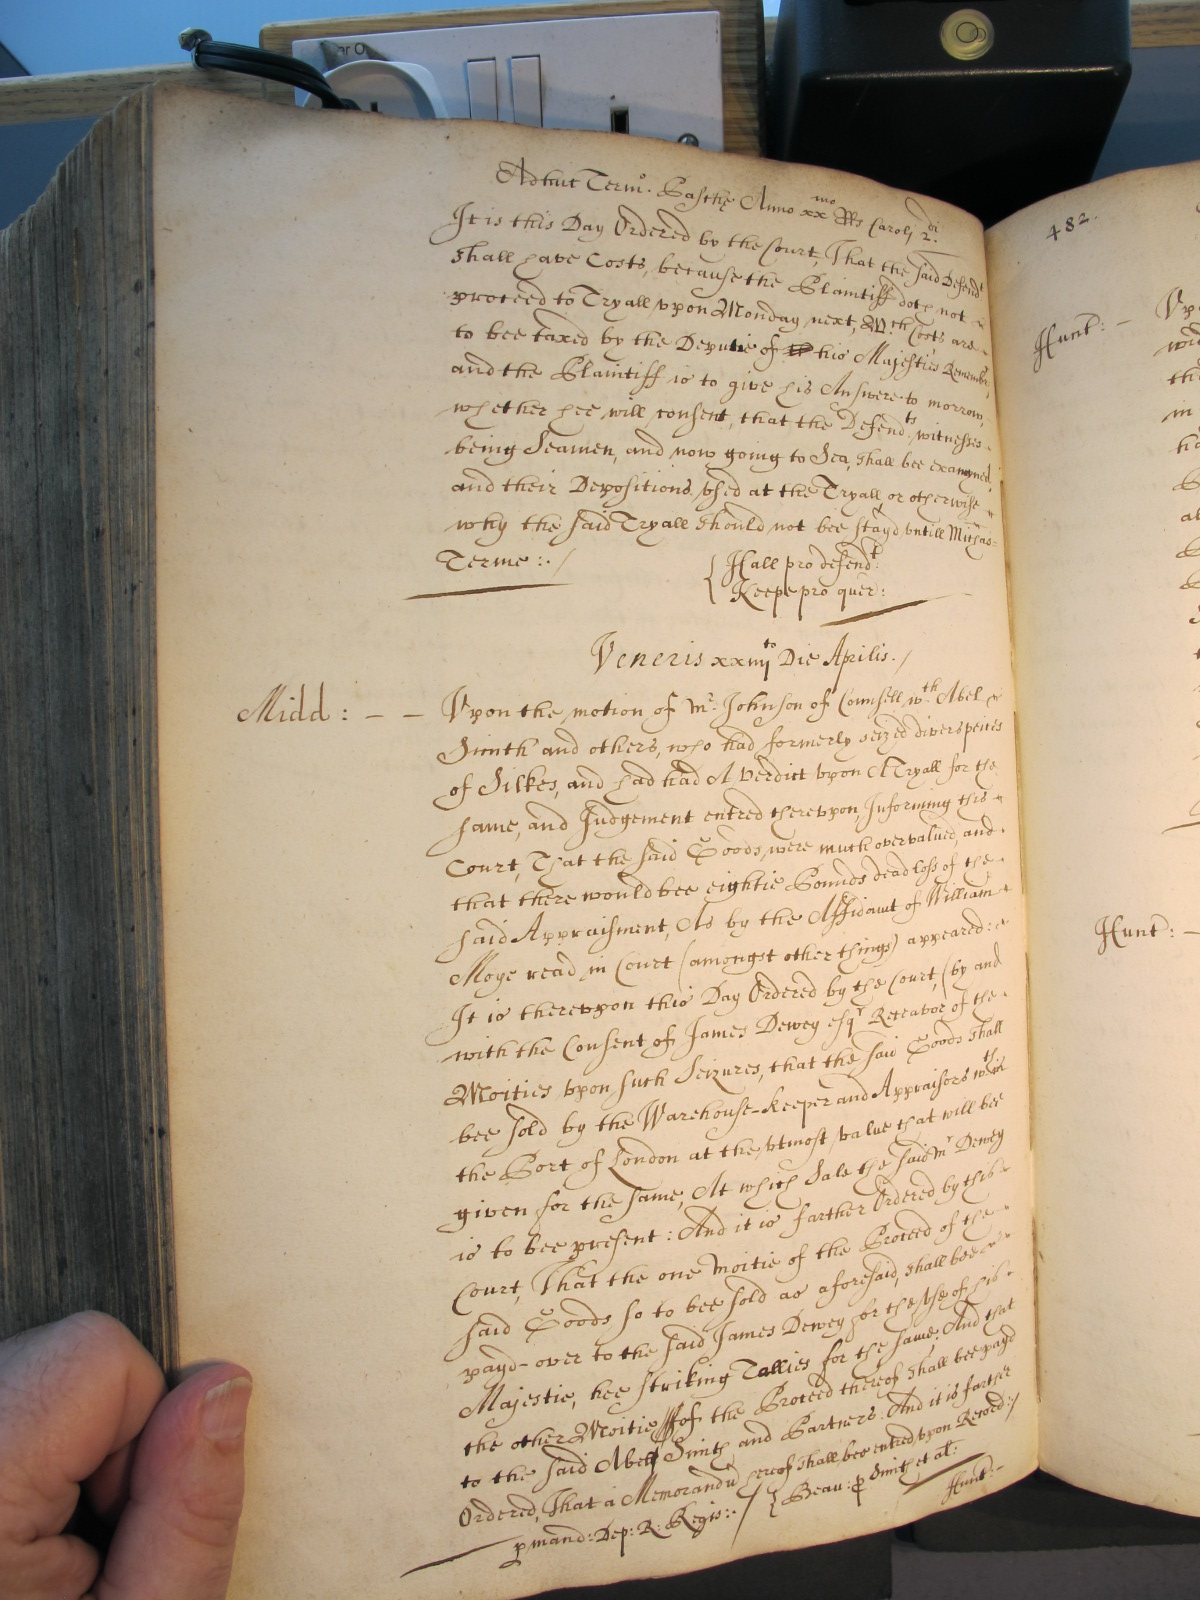 Adhuc Term: Paschę Anno xx mo RRs Caroli 2 di.
It is this Day Ordered by the Court, That the said Defend t
shall have Costs, because the Plaintiff doth not
proceed to Tryall vpon Monday next, W ch Costs are
to bee taxed by the Deputie of his Majesties Rememb:
and the Plaintiff is to give his Answere to morrow,
whether hee will consent, that the Defend ts witnesses
being Seamen, and now going to Sea, shall bee examyned,
and their Depositions vsed at the Tryall or otherwise
why the said Tryall should not bee stayd vntill Mich'as
Terme :. /
Hall pro defend t
Keepe pro quer:
Veneris xxiiij to Die Aprilis. /
Midd : – – Vpon the motion of Mr. Johnson of Counsell w th Abel
Smith and others, who had formerly seized divers peices
of Silkes, and had had A Verdict vpon A Tryall for the
same, and Judgement entred therevpon, Informing this
Court, That the said Goods, were much overvalued, and
that there would bee eightie Pounds dead loss of the
said Appraisment, As by the Affidavit of William
Moye read in Court (amongst other things) appeared:
It is therevpon this Day Ordered by the Court, (by and
with the Consent of James Dewey esq r Receavor of the
Moities vpon such Seizures, that the said Goods shall
bee sold by the Warehouse-keeper and Appraisors w th in
the Port of London at the vtmost value that will bee
given for the same, At which Sale the said M r Dewey
is to bee present : And it is farther Ordered by this
Court, That the one Moitie of the Proceed of the
said Goods so to bee sold as aforesaid, shall bee
payd-over to the said James Dewey for the vse of his
Majestie, hee striking Tallies for the same: And that
the other Moitie of the Proceed thereof shall bee payd
to the said Abell Smith and Partners. And it is farther
Ordered, That a Memorandu ereof shall bee entred vpon Record: /
p mand: Dep: R: Regis :. / Beau: p Smith et al:
Hunt: –
482.
Hunt: –
Hunt: –